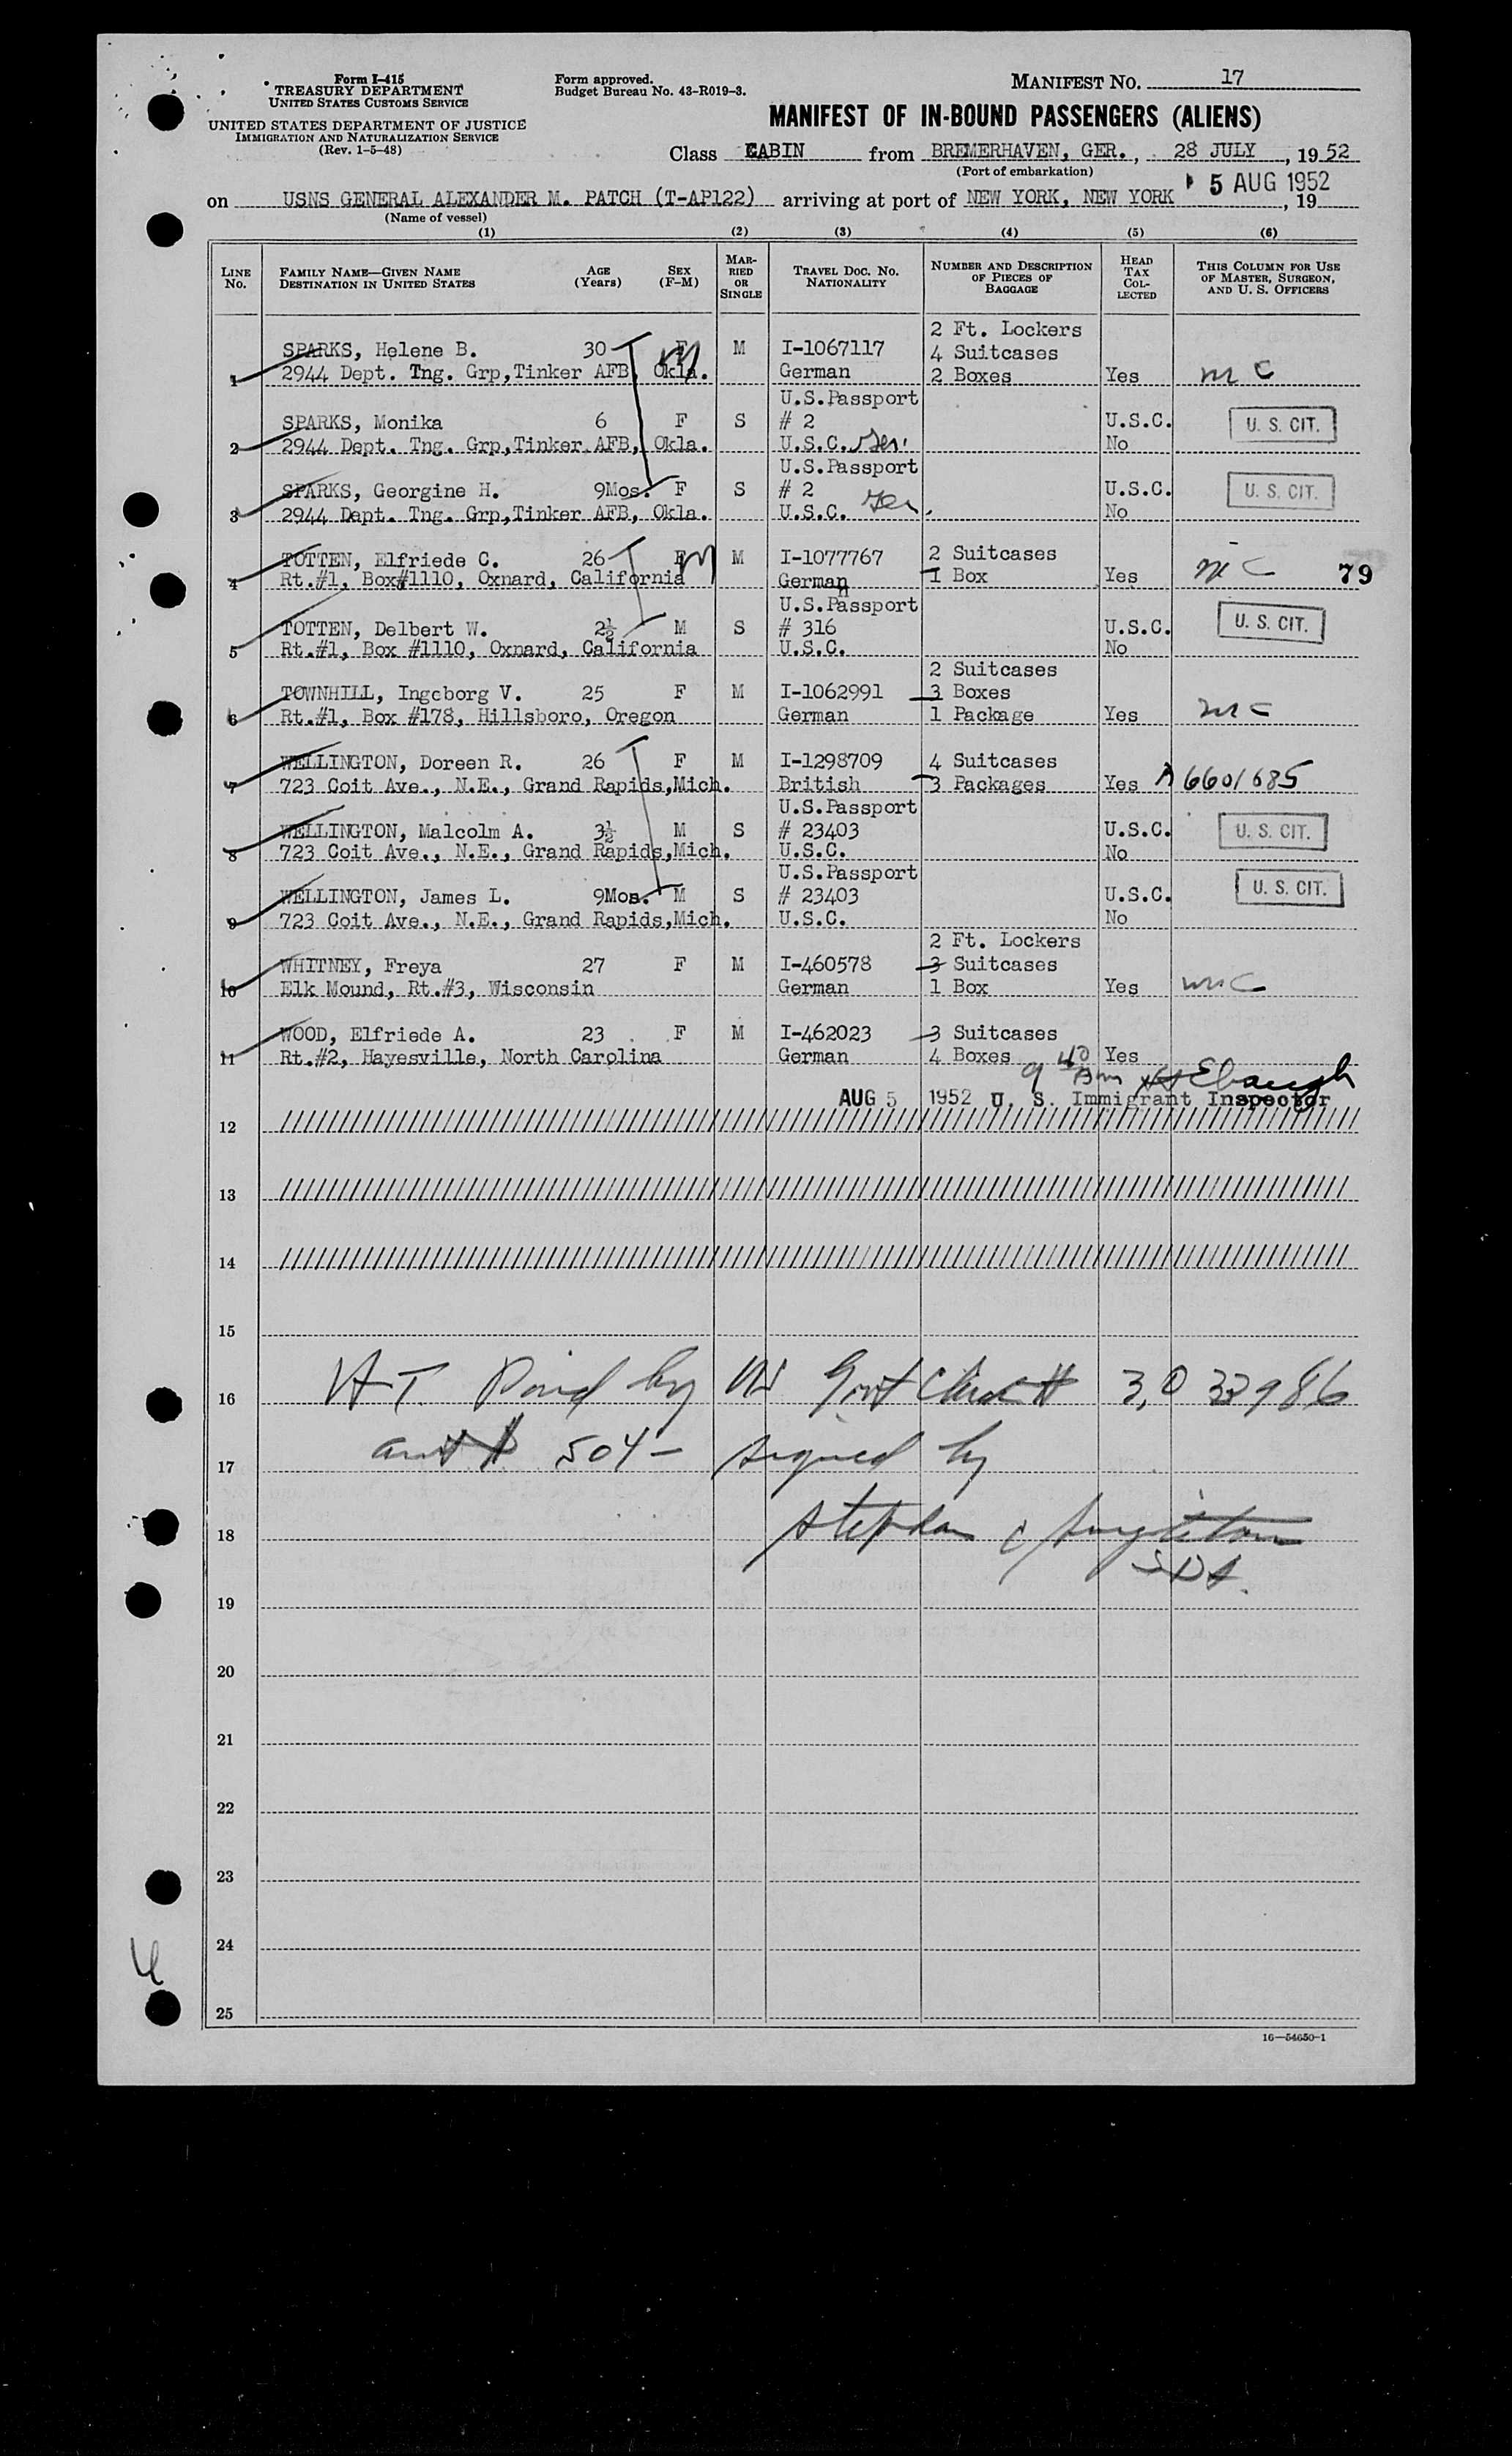 Form I-415
TREASURY DEPARTMENT
UNITED STATES CUSTOMS SERVICE
UNITED STATES DEPARTMENT OF JUSTICE
IMMIGRATION AND NATURALIZATION SERVICE
(Rev. 1-5-48)
Form approved.
Budget Bureau No. 43-R019-3.
MANIFEST NO. 17
MANIFEST OF IN-BOUND PASSENGERS (ALIENS)
Class CABIN from BREMERHAVEN, GER., 28 JULY, 1952
(Port of embarkation)
on USNS GENERAL ALEXANDER M. PATCH (T-AP122) arriving at port of NEW YORK, NEW YORK 5 AUG 1952, 19
(Name of vessel)
(1) (2) (3) (4) (5) (6)
LINE No. FAMILY NAME—GIVEN NAME DESTINATION IN UNITED STATES AGE (Years) SEX (F-M) MARRIED OR SINGLE TRAVEL DOC. NO. NATIONALITY NUMBER AND DESCRIPTION OF PIECES OF BAGGAGE HEAD TAX COLLECTED THIS COLUMN FOR USE OF MASTER, SURGEON, AND U. S. OFFICERS
2 Ft. Lockers
SPARKS, Helene B. 30 F M I-1067117 4 Suitcases
1 2944 Dept. Tng. Grp,Tinker AFB, Okla. German 2 Boxes Yes m c
U.S.Passport
SPARKS, Monika 6 F S # 2 U.S.C. U. S. CIT.
2 2944 Dept. Tng. Grp,Tinker AFB, Okla. U.S.C. Ger. No
U.S.Passport
SPARKS, Georgine H. 9Mos. F S # 2 U.S.C. U. S. CIT.
3 2944 Dapt. Tng. Grp,Tinker AFB, Okla. U.S.C. Ger. No
TOTTEN, Elfriede C. 26 F M I-1077767 2 Suitcases
4 Rt.#1, Box#1110, Oxnard, California German 1 Box Yes m c 79
U.S.Passport
TOTTEN, Delbert W. 2½ M S # 316 U.S.C. U. S. CIT.
5 Rt.#1, Box #1110, Oxnard, California U.S.C. No
2 Suitcases
TOWNHILL, Ingeborg V. 25 F M I-1062991 3 Boxes
6 Rt.#1, Box #178, Hillsboro, Oregon German 1 Package Yes m c
WELLINGTON, Doreen R. 26 F M I-1298709 4 Suitcases
7 723 Coit Ave., N.E., Grand Rapids,Mich. British 3 Packages Yes A6601685
U.S.Passport
WELLINGTON, Malcolm A. 3½ M S # 23403 U.S.C. U. S. CIT.
8 723 Coit Ave., N.E., Grand Rapids,Mich. U.S.C. No
U.S.Passport
WELLINGTON, James L. 9Mos. M S # 23403 U.S.C. U. S. CIT.
9 723 Coit Ave., N.E., Grand Rapids,Mich. U.S.C. No
2 Ft. Lockers
WHITNEY, Freya 27 F M I-460578 3 Suitcases
10 Elk Mound, Rt.#3, Wisconsin German 1 Box Yes m c
WOOD, Elfriede A. 23 F M I-462023 3 Suitcases
11 Rt.#2, Hayesville, North Carolina German 4 Boxes Yes
9 40 am Ebaugh
AUG 5 1952 U. S. Immigrant Inspector
12
13
14
15
16 HT. Paid by US Govt Check # 3,033986
17 amt $ 504- signed by
18 Stephan C Singleton
19
20
21
22
23
24
25
4
16—54650-1